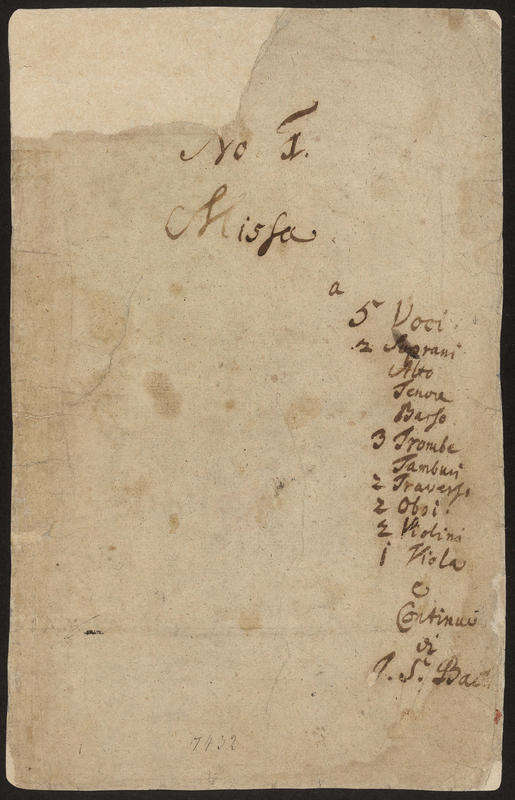 No I.
Missa
a
5 Voci.
2 Soprani
Alto
Tenore
Basso
3 Trombe
Tamburi
2 Traversi
2 Oboi.
2 Violini
1 Viola
e
Continuo
di
J. S. Bach
7432